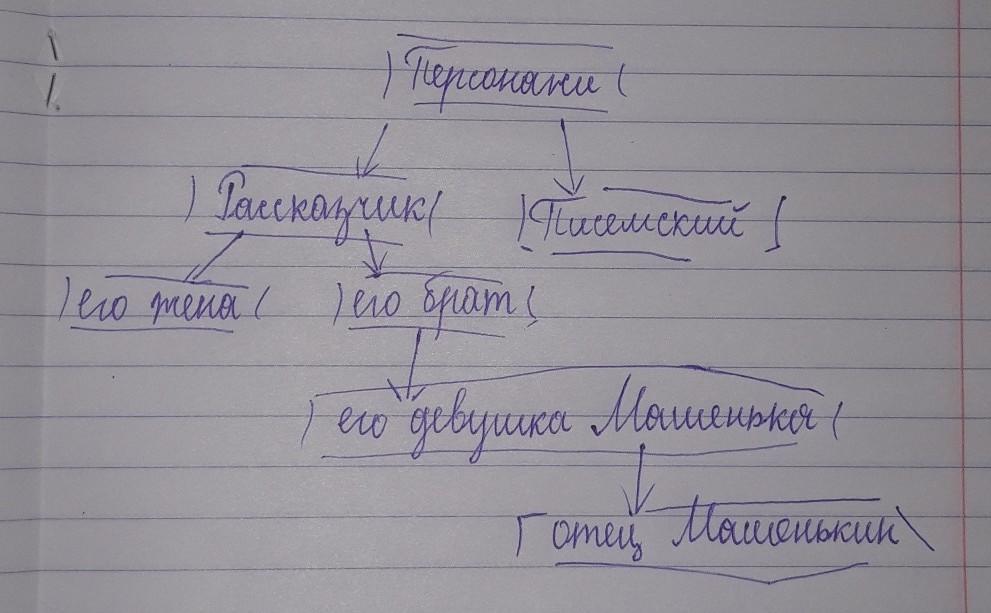 Персонажи
Рассказчик Писемский
его жена его брат
его девушка Машенька
отец Машенькин